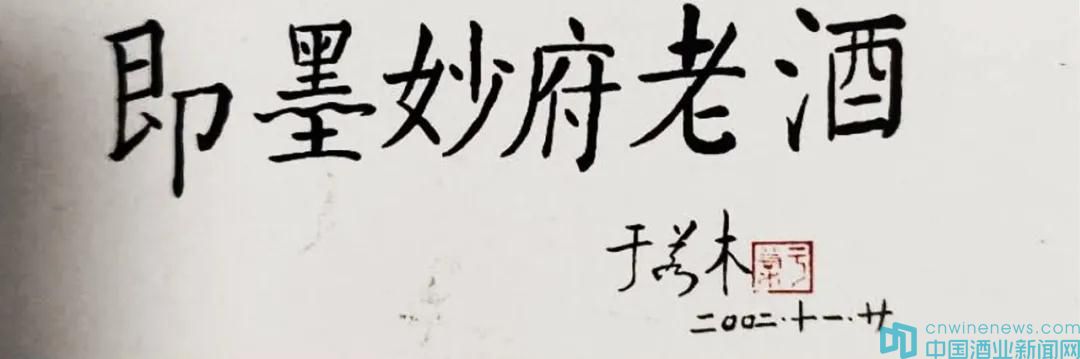 即墨妙府老酒
于若木
二〇〇二.十一.廿
cnwinenews.com
中国酒业新闻网